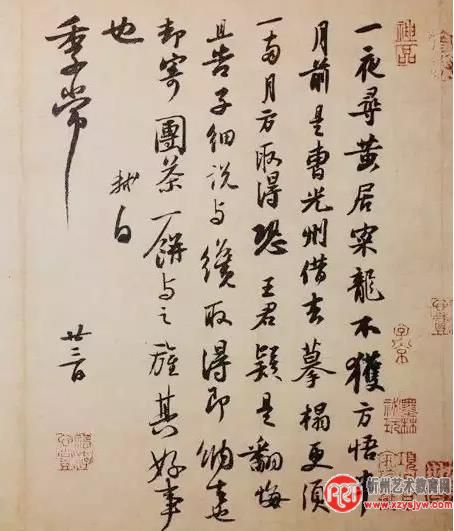 一夜尋黃居寀龍不獲方悟半
月前是曹光州借去摹榻更須
一兩月方取得恐王君疑是翻悔
且告子細說與纔取得即納去也
却寄團茶一餅與之旌其好事
也
軾白
季常
廿三日
神品
子京
忻州艺术教育网
www.xzysjyw.com